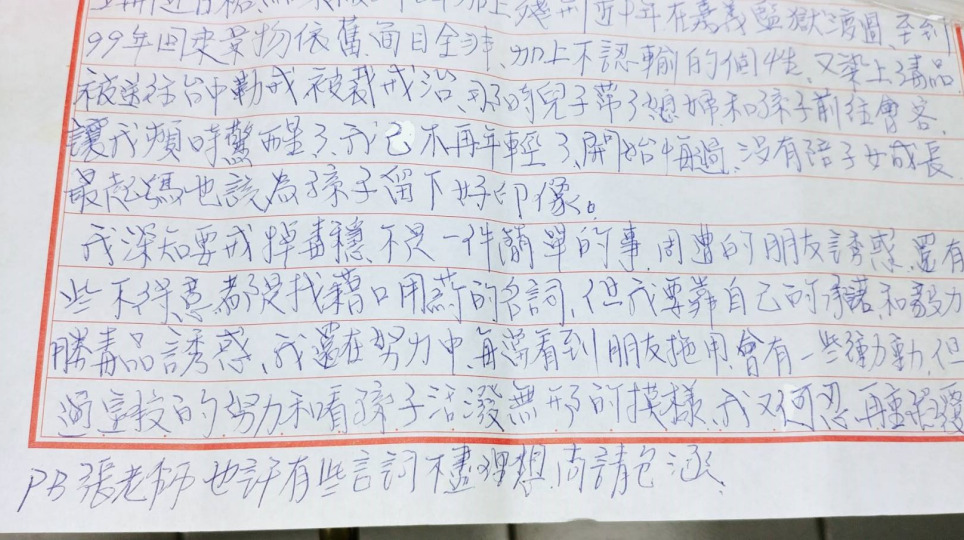 近中年在嘉義監獄渡過、至到
99年回來景物依舊、面目全非、加上不認輸的個性、又染上毒品
被送往台中勒戒被裁戒治、的兒子帶了媳婦和孫子前往會客、
讓我頓時驚醒了、我已不再年輕了、開始悔過、沒有陪子女成長
最起碼也該為孫子留下好印像。
我深知要戒掉毒癮不是一件簡單的事、周遭的朋友誘惑、還有
些不得意、都是找藉口用藥的名詞、但我要靠自己的承諾和毅力
勝毒品誘惑、我還在努力中、每當看到朋友施用會有一些衝動、但
過家投的努力和看孫子活潑無邪的模樣、我又何忍再重蹈覆
PS張老師也許有些言詞不盡理想、尚請包涵、